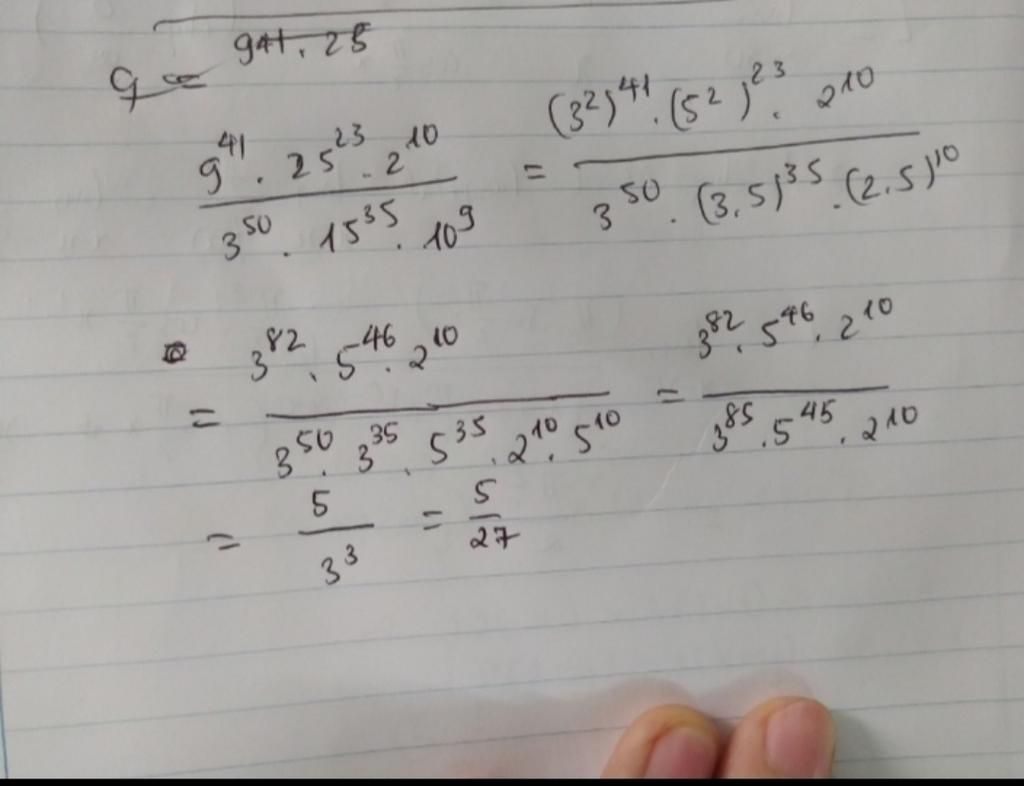 9^41 . 25
9 =
9^41 . 25^23 . 2^10 / 3^50 . 15^35 . 10^9 = (3^2)^41 . (5^2)^23 . 2^10 / 3^50 . (3.5)^35 . (2.5)^10
= 3^82 . 5^46 . 2^10 / 3^50 . 3^35 . 5^35 . 2^10 . 5^10 = 3^82 . 5^46 . 2^10 / 3^85 . 5^45 . 2^10
= 5 / 3^3 = 5 / 27